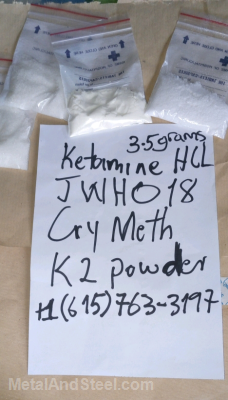 3.5grams
Ketamine HCL
JWH018
Cry Meth
K2 powder
+1(615)763-3197
MetalAndSteel.com